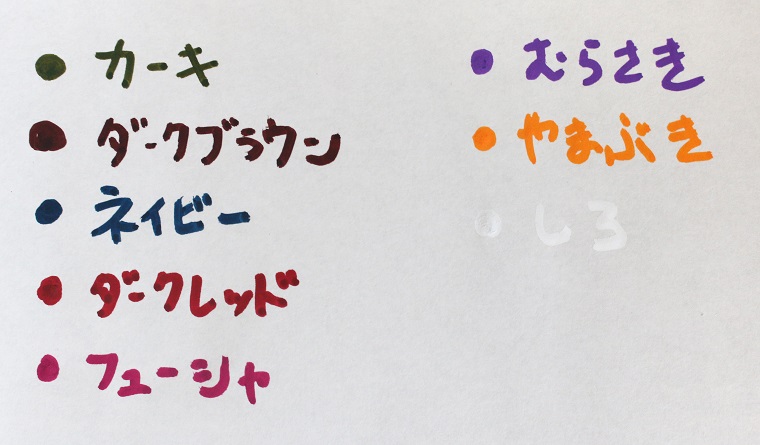 ● カーキ
● ダークブラウン
● ネイビー
● ダークレッド
● フューシャ
● むらさき
● やまぶき
● しろ